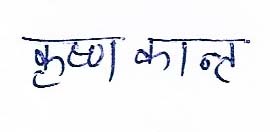 कृष्ण कान्त